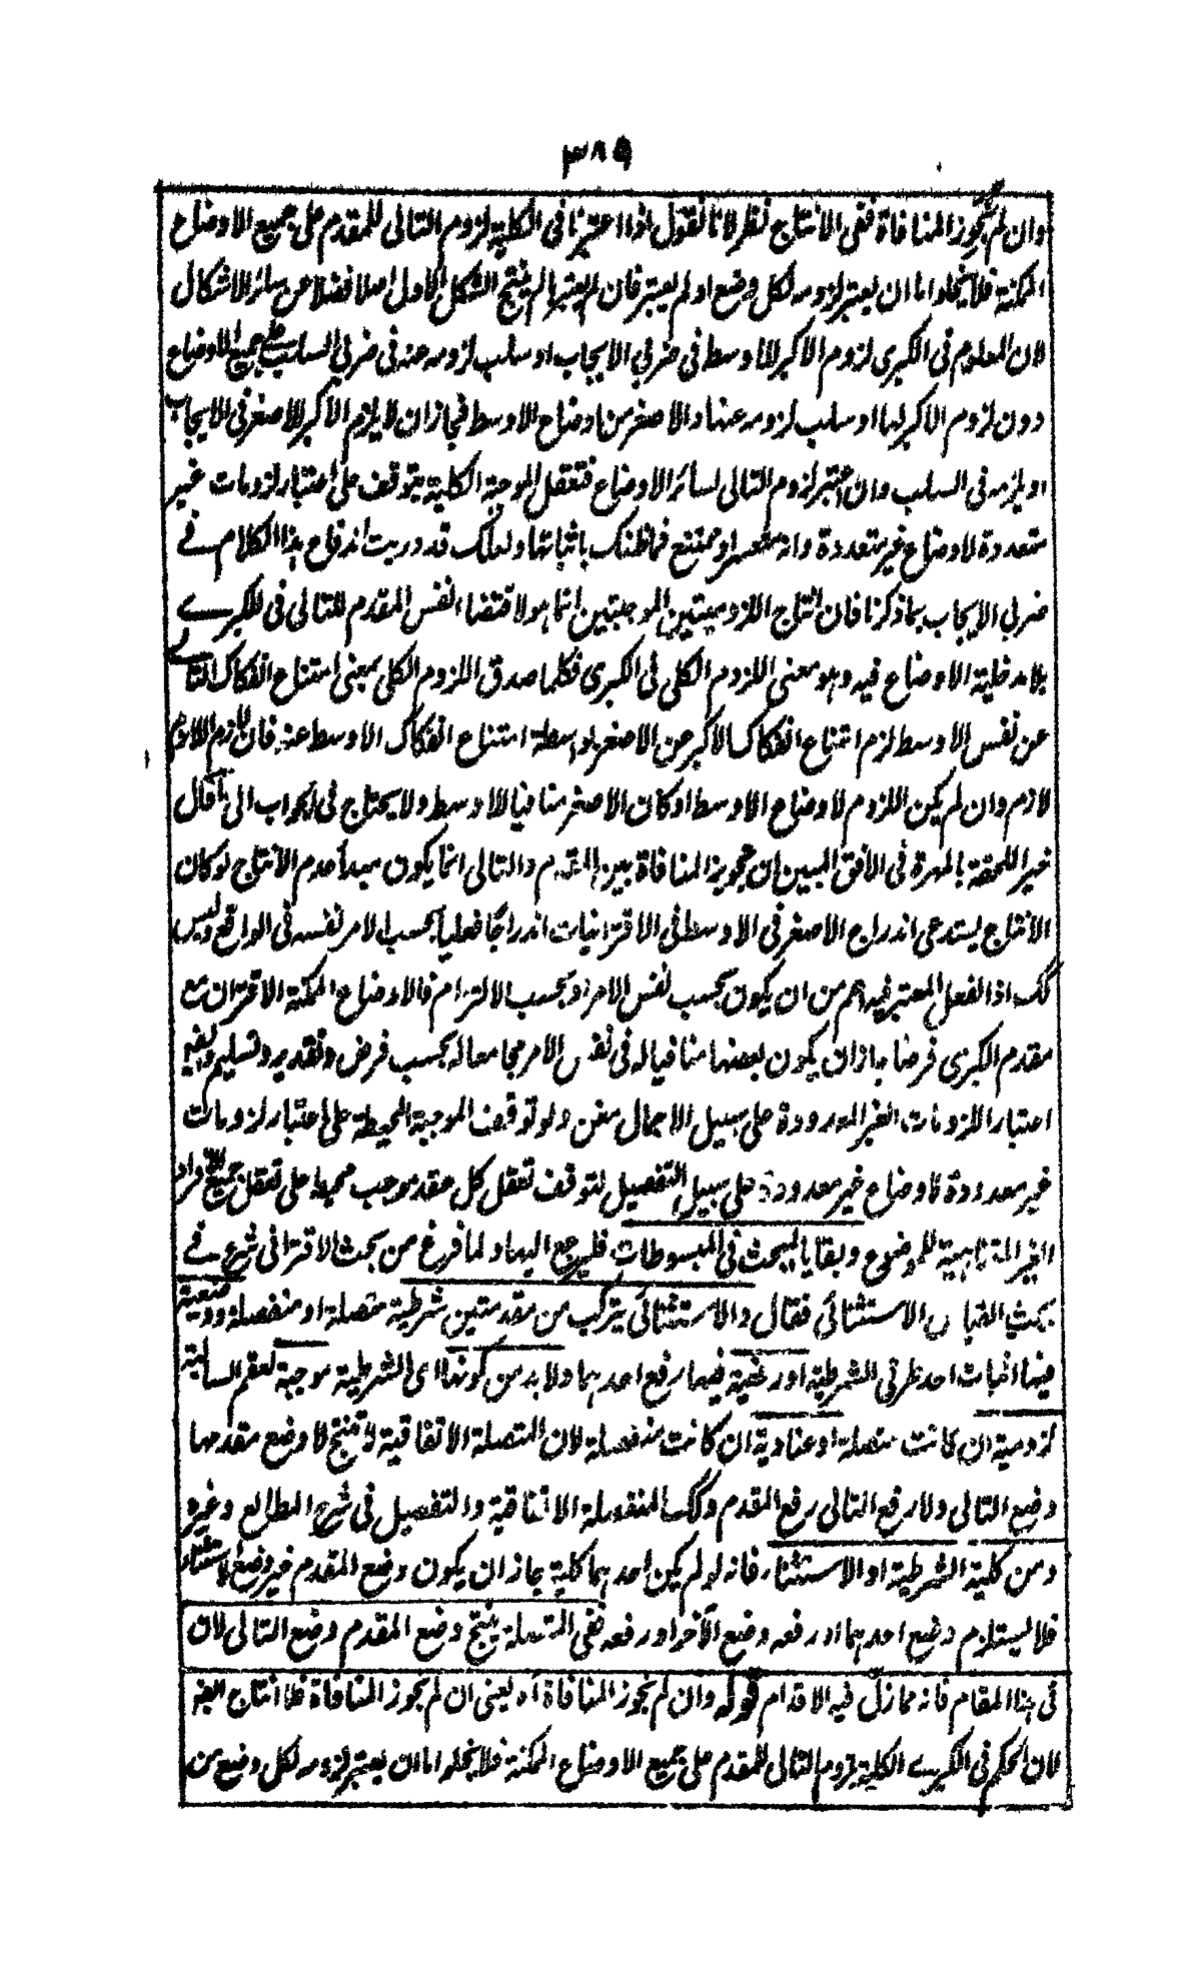 ٣٨٩
وان لم يجوز المنافاة ففى الانتاج نظر لانا نقول اذا اعتبرنا فى الكلية لزوم التالى للمقدم على جميع الاوضاع
الممكنة فلا يخلو اما ان يعتبر لزومه لكل وضع او لم يعتبر فان لم يعتبر لم ينتج الشكل الاول اصلا فضلا عن سائر الاشكال
لان المعلوم فى الكبرى لزوم الاكبر للاوسط فى ضربى الايجاب او سلب لزومه عنه فى ضربى السلب على جميع الاوضاع
دون لزوم الاكبر لها او سلب لزومه عنها والاصغر من اوضاع الاوسط فجاز ان لا يلزم الاكبر للاصغر فى الايجاب
او يلزمه فى السلب وان اعتبر لزوم التالى لسائر الاوضاع فتعقل الموجبة الكلية يتوقف على اعتبار لزومات غير
متعددة لاوضاع غير متعددة وانه متعسر او ممتنع فما ظنك باثباتها ولعلك قد دريت اندفاع هذا الكلام فے
ضربى الايجاب بما ذكرنا فان انتاج اللزوميتين الموجبتين انما هو لاقتضاء نفس المقدم للتالى فى الكبرے
بلا مدخلية الاوضاع فيه وهو معنى اللزوم الكلى فى الكبرى فكلما صدق اللزوم الكلى بمعنى امتناع انفكاك التالى
عن نفس الاوسط لزم امتناع انفكاك الاكبر عن الاصغر بواسطة امتناع انفكاك الاوسط عنه فان لازم اللازم
لازم وان لم يكن اللزوم لاوضاع الاوسط او كان الاصغر منافيا للاوسط ولا يحتاج فى الجواب الى ما قال
خير اللحقة بالمهرة فى الافق المبين ان تجويز المنافاة بين المقدم والتالى انما يكون مبدأ عدم الانتاج لو كان
الانتاج يستدعى اندراج الاصغر فى الاوسط فى الاقترانيات اندراجا فعليا بحسب الامر نفسه فى الواقع وليس
كك اذ الفعل المعتبر فيه اهم من ان يكون بحسب نفس الامر او بحسب الالتزام فالاوضاع الممكنة الاقتران مع
مقدم الكبرى فرضا جاز ان يكون بعضها منافيا له فى نفس الامر مجامعا له بحسب فرض وتقدير وتسليم وبغير
اعتبار اللزومات الغير المعدودة على سبيل الاجمال مغن ولو توقف الموجبة المحيطة على اعتبار لزومات
غير معدودة لاوضاع غير معدودة على سبيل التفصيل لتوقف تعقل كل عقد موجب محيط على تعقل جميع الافراد
الغير المتناهية للموضوع وبقايا المبحث فى المبسوطات فليرجع اليها ولما فرغ من بحث الاقترانى شرع فے
بحث القياس الاستثنائى فقال والاستثنائى يتركب من مقدمتين شرطية متصلة او منفصلة ووضعية
فيها اثبات احد طرفى الشرطية او رفعية فيها رفع احدهما ولا بد من كونها اى الشرطية موجبة لعقم السالبة
لزومية ان كانت متصلة او عنادية ان كانت منفصلة لان المتصلة الاتفاقية لا تنتج لا وضع مقدمها
وضع التالى ولا رفع التالى رفع المقدم وكك المنفصلة الاتفاقية والتفصيل فى شرح المطالع وغيره
ومن كلية الشرطية او الاستثناء فانه لو لم يكن احدهما كلية جاز ان يكون وضع المقدم غير وضع الاستثناء
فلا يستلزم وضع احدهما او رفعه وضع الآخر او رفعه ففى المتصلة ينتج وضع المقدم وضع التالى لان
فى هذا المقام فانه مما زل فيه الاقدام قوله وان لم نجوز المنافاة اه يعنى ان لم نجوز المنافاة فلا انتاج ايضا
لان الحكم فى الكبرے الكلية بلزوم التالى للمقدم على جميع الاوضاع الممكنة فلا يخلو اما ان يعتبر لزومه لكل وضع من